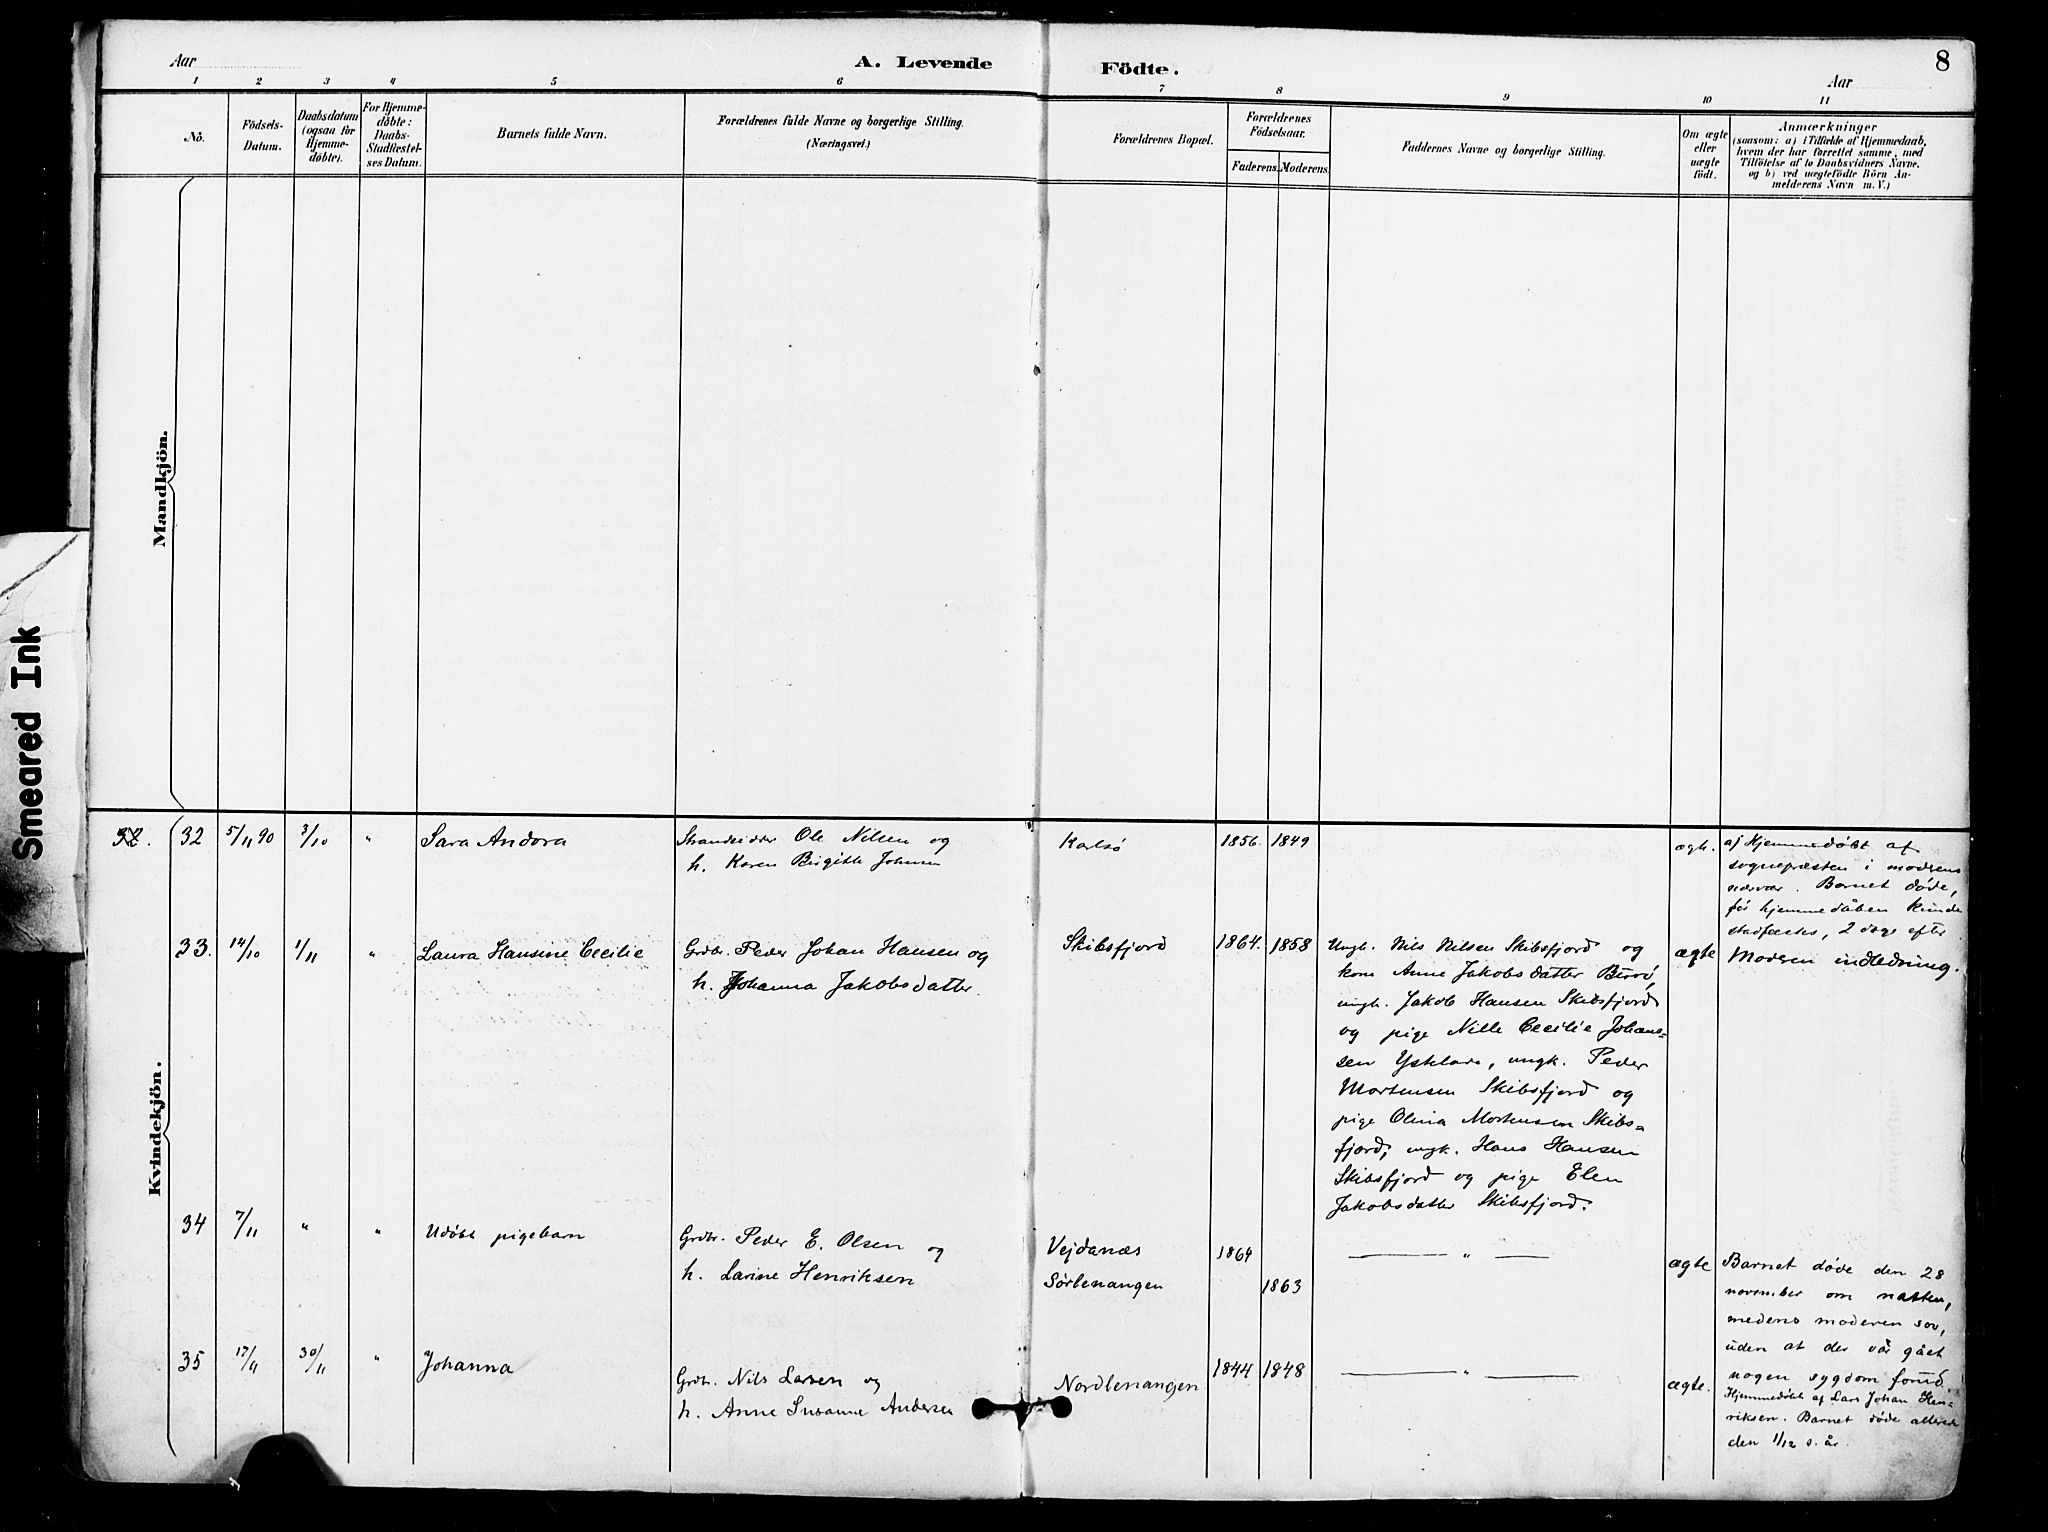 Aar
A. Levende Födte.
Aar
8
1 2 3 4 5 6 7 8 9 10 11
No.
Födsels-
Datum.
Daabsdatum
(ogsaa for
Hjemme-
döbte).
For Hjemme-
döbte:
Daabs-
Stadfæstel-
ses Datum.
Barnets fulde Navn.
Forældrenes fulde Navne og borgerlige Stilling.
(Næringsvei.)
Forældrenes Bopæl.
Forældrenes
Födselsaar.
Faderens. Moderens.
Faddernes Navne og borgerlige Stilling.
Om ægte
eller
uægte
födt.
Anmærkninger
(saasom: a) i Tilfælde af Hjemmedaab,
hvem der har forrettet samme, med
Tilföielse af to Daabsvidners Navne.
og b) ved uægtefödte Börn An-
melderens Navn m. V.)
Mandkjön.
Smeared Ink
Kvindekjön.
32 5/11 90 3/10 "
Sara Andora
Ole Nilsen og
h. Karen Birgithe
Karlsö
1856. 1849
a) Hjemmedöbt af
sognepræsten i moderens
nærvær. Barnet döde,
för hjemmedåben kunde
stadfæstes, 2 dage efter
Moderen indledning.
33. 14/10 1/11 "
Laura Hansine Cecilie
Grdbr. Peder Johan Hansen og
h. Johanna Jakobsdatter.
Skibsfjord
1864. 1858
Ungk. Nils Nilsen Skibsfjord og
kone Anne Jakobsdatter
ungk. Jakob Hansen Skibsfjord
og pige Nille Cecilie Johan-
sen ungk. Peder
Mortensen Skibsfjord og
pige Olina Mortensen Skibs-
fjord, ungk. Hans Hansen
Skibsfjord og pige Elen
Jakobsdatter Skibsfjord.
ægte
34 7/11 " "
Udöbt pigebarn
Grdbr. Peder E. Olsen og
h. Larine Henriksen
Vejdanæs
Sörlenangen
1864
1863
"
ægte
Barnet döde den 28
november om natten,
medens moderen sov,
uden at der vår gået
nogen sygdom forud.
35 17/11 30/11 "
Johanna
Grdbr. Nils Larsen og
h. Anne Susanne Andersen
Nordlenangen
1844 1848
"
ægte.
Hjemmedöbt af Lars Johan Hen-
riksen. Barnet döde allerede
den 1/12 s. år.